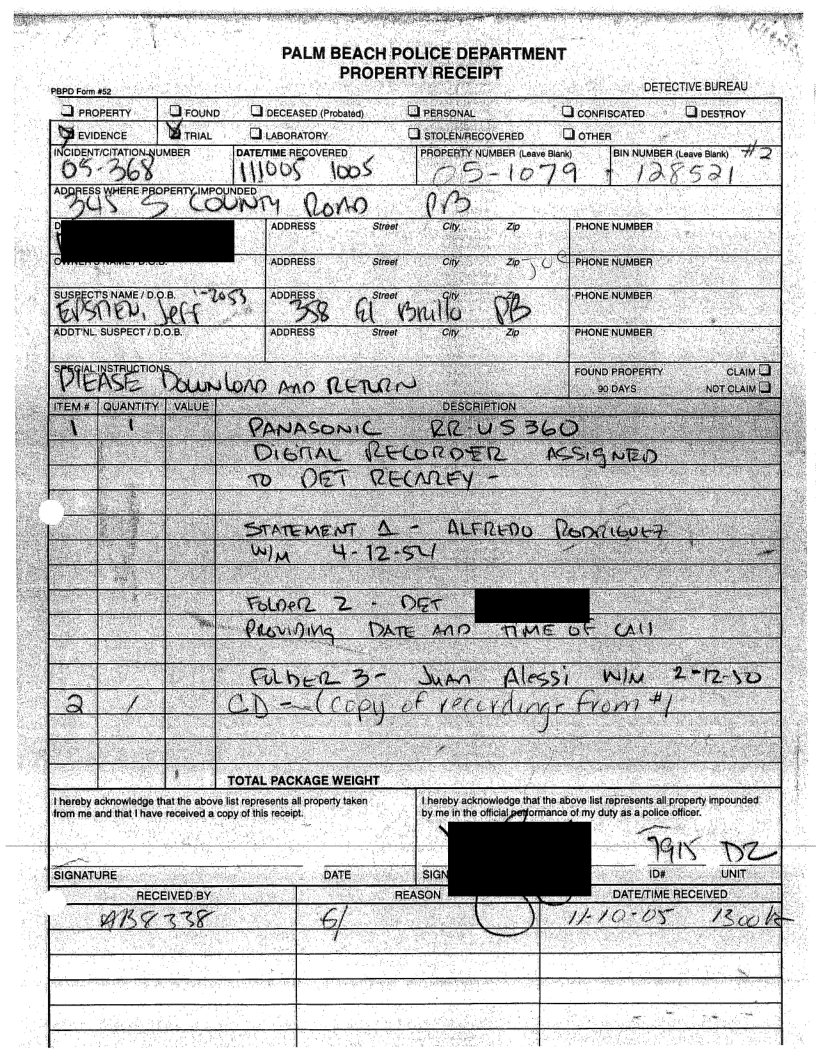 PALM BEACH POLICE DEPARTMENT
PROPERTY RECEIPT
PBPD Form #52
DETECTIVE BUREAU
PROPERTY FOUND DECEASED (Probated) PERSONAL CONFISCATED DESTROY
EVIDENCE TRIAL LABORATORY STOLEN/RECOVERED OTHER
INCIDENT/CITATION NUMBER DATE/TIME RECOVERED PROPERTY NUMBER (Leave Blank) BIN NUMBER (Leave Blank) #2
05-368 111005 1005 05-1079 128521
ADDRESS WHERE PROPERTY IMPOUNDED
345 S COUNTY ROAD PB
ADDRESS Street City Zip PHONE NUMBER
OWNER'S NAME / D.O.B. ADDRESS Street City Zip PHONE NUMBER
SUSPECT'S NAME / D.O.B. ADDRESS Street City Zip PHONE NUMBER
EPSTIEN, Jeff 358 El Brillo PB
ADDT'NL. SUSPECT / D.O.B. ADDRESS Street City Zip PHONE NUMBER
SPECIAL INSTRUCTIONS FOUND PROPERTY CLAIM
PLEASE DOWNLOAD AND RETURN 90 DAYS NOT CLAIM
ITEM # QUANTITY VALUE DESCRIPTION
1 1 PANASONIC RR-US360
DIGITAL RECORDER ASSIGNED
TO DET RECAREY -
STATEMENT 1 - ALFREDO RODRIGUEZ
W/M 4-12-54
FOLDER 2 - DET
PROVIDING DATE AND TIME OF CALL
FOLDER 3- JUAN Alessi W/M 2-12-50
2 1 CD - (Copy of recordings from #1
TOTAL PACKAGE WEIGHT
I hereby acknowledge that the above list represents all property taken
from me and that I have received a copy of this receipt.
I hereby acknowledge that the above list represents all property impounded
by me in the official performance of my duty as a police officer.
7915 DZ
SIGNATURE DATE SIGN ID# UNIT
RECEIVED BY REASON DATE/TIME RECEIVED
AB8338 11-10-05 1300